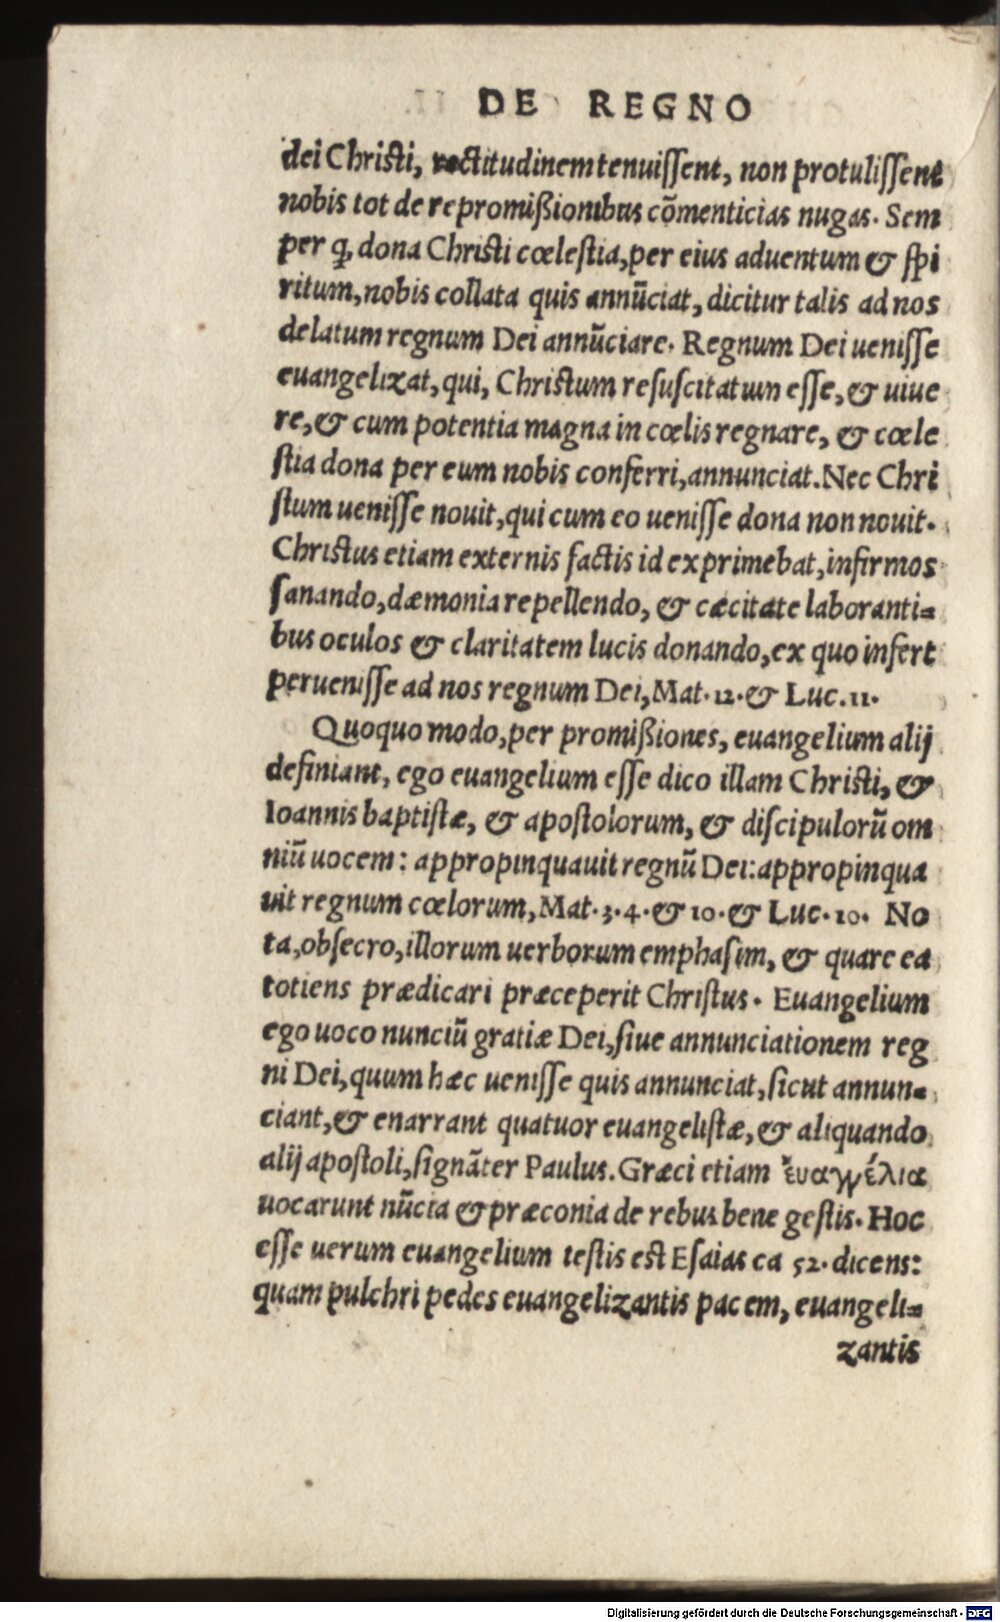 DE REGNO
dei Christi, rectitudinem tenuissent, non protulissent
nobis tot de repromißionibus cõmenticias nugas. Sem
per q, dona Christi cœlestia, per eius aduentum & spi
ritum, nobis collata quis annũciat, dicitur talis ad nos
delatum regnum Dei annũciare. Regnum Dei uenisse
euangelizat, qui, Christum resuscitatum esse, & uiue
re, & cum potentia magna in cœlis regnare, & cœle
stia dona per eum nobis conferri, annunciat. Nec Chri
stum uenisse nouit, qui cum eo uenisse dona non nouit.
Christus etiam externis factis id exprimebat, infirmos
sanando, dæmonia repellendo, & cæcitate laboranti=
bus oculos & claritatem lucis donando, ex quo infert
peruenisse ad nos regnum Dei, Mat. 12. & Luc. 11.
Quoquo modo, per promißiones, euangelium alij
definiant, ego euangelium esse dico illam Christi, &
Ioannis baptistæ, & apostolorum, & discipulorũ om
niũ uocem: appropinquauit regnũ Dei: appropinqua
uit regnum cœlorum, Mat. 3. 4. & 10. & Luc. 10. No
ta, obsecro, illorum uerborum emphasim, & quare ea
totiens prædicari præceperit Christus. Euangelium
ego uoco nunciũ gratiæ Dei, siue annunciationem reg
ni Dei, quum hæc uenisse quis annunciat, sicut annun=
ciant, & enarrant quatuor euangelistæ, & aliquando
alij apostoli, signãter Paulus. Græci etiam ἐυαγγέλια
uocarunt nũcia & præconia de rebus bene gestis. Hoc
esse uerum euangelium testis est Esaias ca 52. dicens:
quam pulchri pedes euangelizantis pacem, euangeli=
zantis
Digitalisierung gefördert durch die Deutsche Forschungsgemeinschaft - DFG